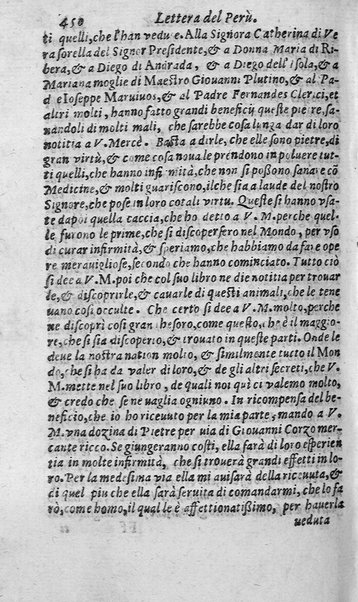 450 Lettera del Perù.
ti quelli, che l'han vedu e. Alla Signora Catherina di Ve
ra sorella del Signor Presidente, & a Donna Maria di Ri-
bera, & a Diego di Andrada, & a Diego dell'Isola, & a
Mariana moglie di Maestro Giouanni Plutino, & al Pad
e Ioseppe Maruiuos, & al Padre Fernandes Clerici, et
altri molti, hanno fatto grandi beneficij queste pietre, sa-
nandoli di molti mali, che sarebbe cosa lunga dar di loro
notitia a V. Mercè. Basta a dirle, che elle sono pietre, di
gran virtù, & come cosa noua le prendono in poluere tut-
ti quelli, che hanno infirmità, che non si possono sanare cō
Medicine, & molti guariscono, ilche sia a laude del nostro
Signore, che pose in loro cotali virtù. Queste si hanno vsa-
te dapoi quella caccia, che ho detto a V. M. perche quel-
le furono le prime, che si discopersero nel Mondo, per vso
di curar infirmità, & speriamo, che habbiamo da fare ope
re merauigliose, secondo che hanno cominciato. Tutto ciò
si dee a V. M. poi che col suo libro ne die notitia per trouar
le, & discoprirle, & cauarle di questi animali, che le tene
uano così occulte. Che certo si dee a V. M. molto, perche
ne discoprì così gran thesoro, come questo, che è il maggio-
re, che si sia discoperto, & trouato in queste parti. Onde le
deue la nostra nation molto, & similmente tutto il Mon
do, che si ha da valer di loro, & de gli altri secreti, che V.
M. mette nel suo libro, de quali noi quì ci valemo molto,
& credo che se ne vaglia ogniuno. In ricompensa del be-
neficio, che io ho riceuuto per la mia parte, mando a V.
M. vna dozina di Pietre per uia di Giouanni Corzo mer-
cante ricco. Se giungeranno costì, ella farà di loro esperien
tia in molte infirmità, che si trouerà grandi effetti in lo-
ro. Per la medesima via ella mi auisarà della riceuuta, &
di quel piu che ella sarà seruita di comandarmi, che lo fa
rò, come homo, il qual le è affettionatissimo, per hauerla
ueduta